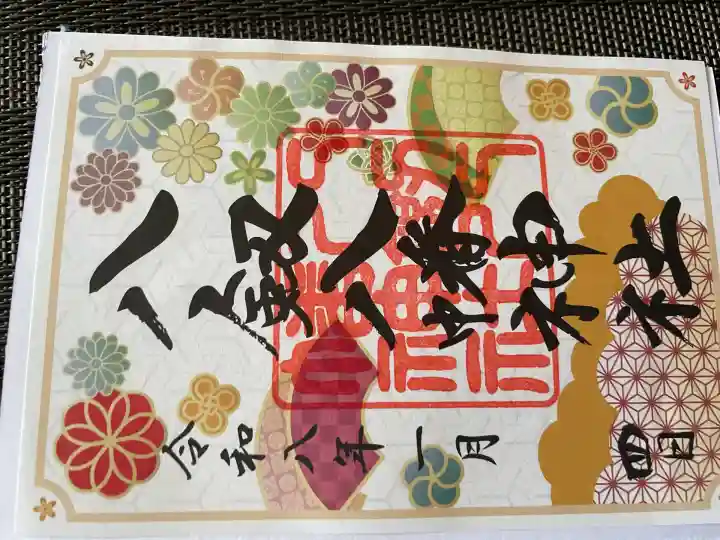 八剱八幡神社
令和八年一月四日